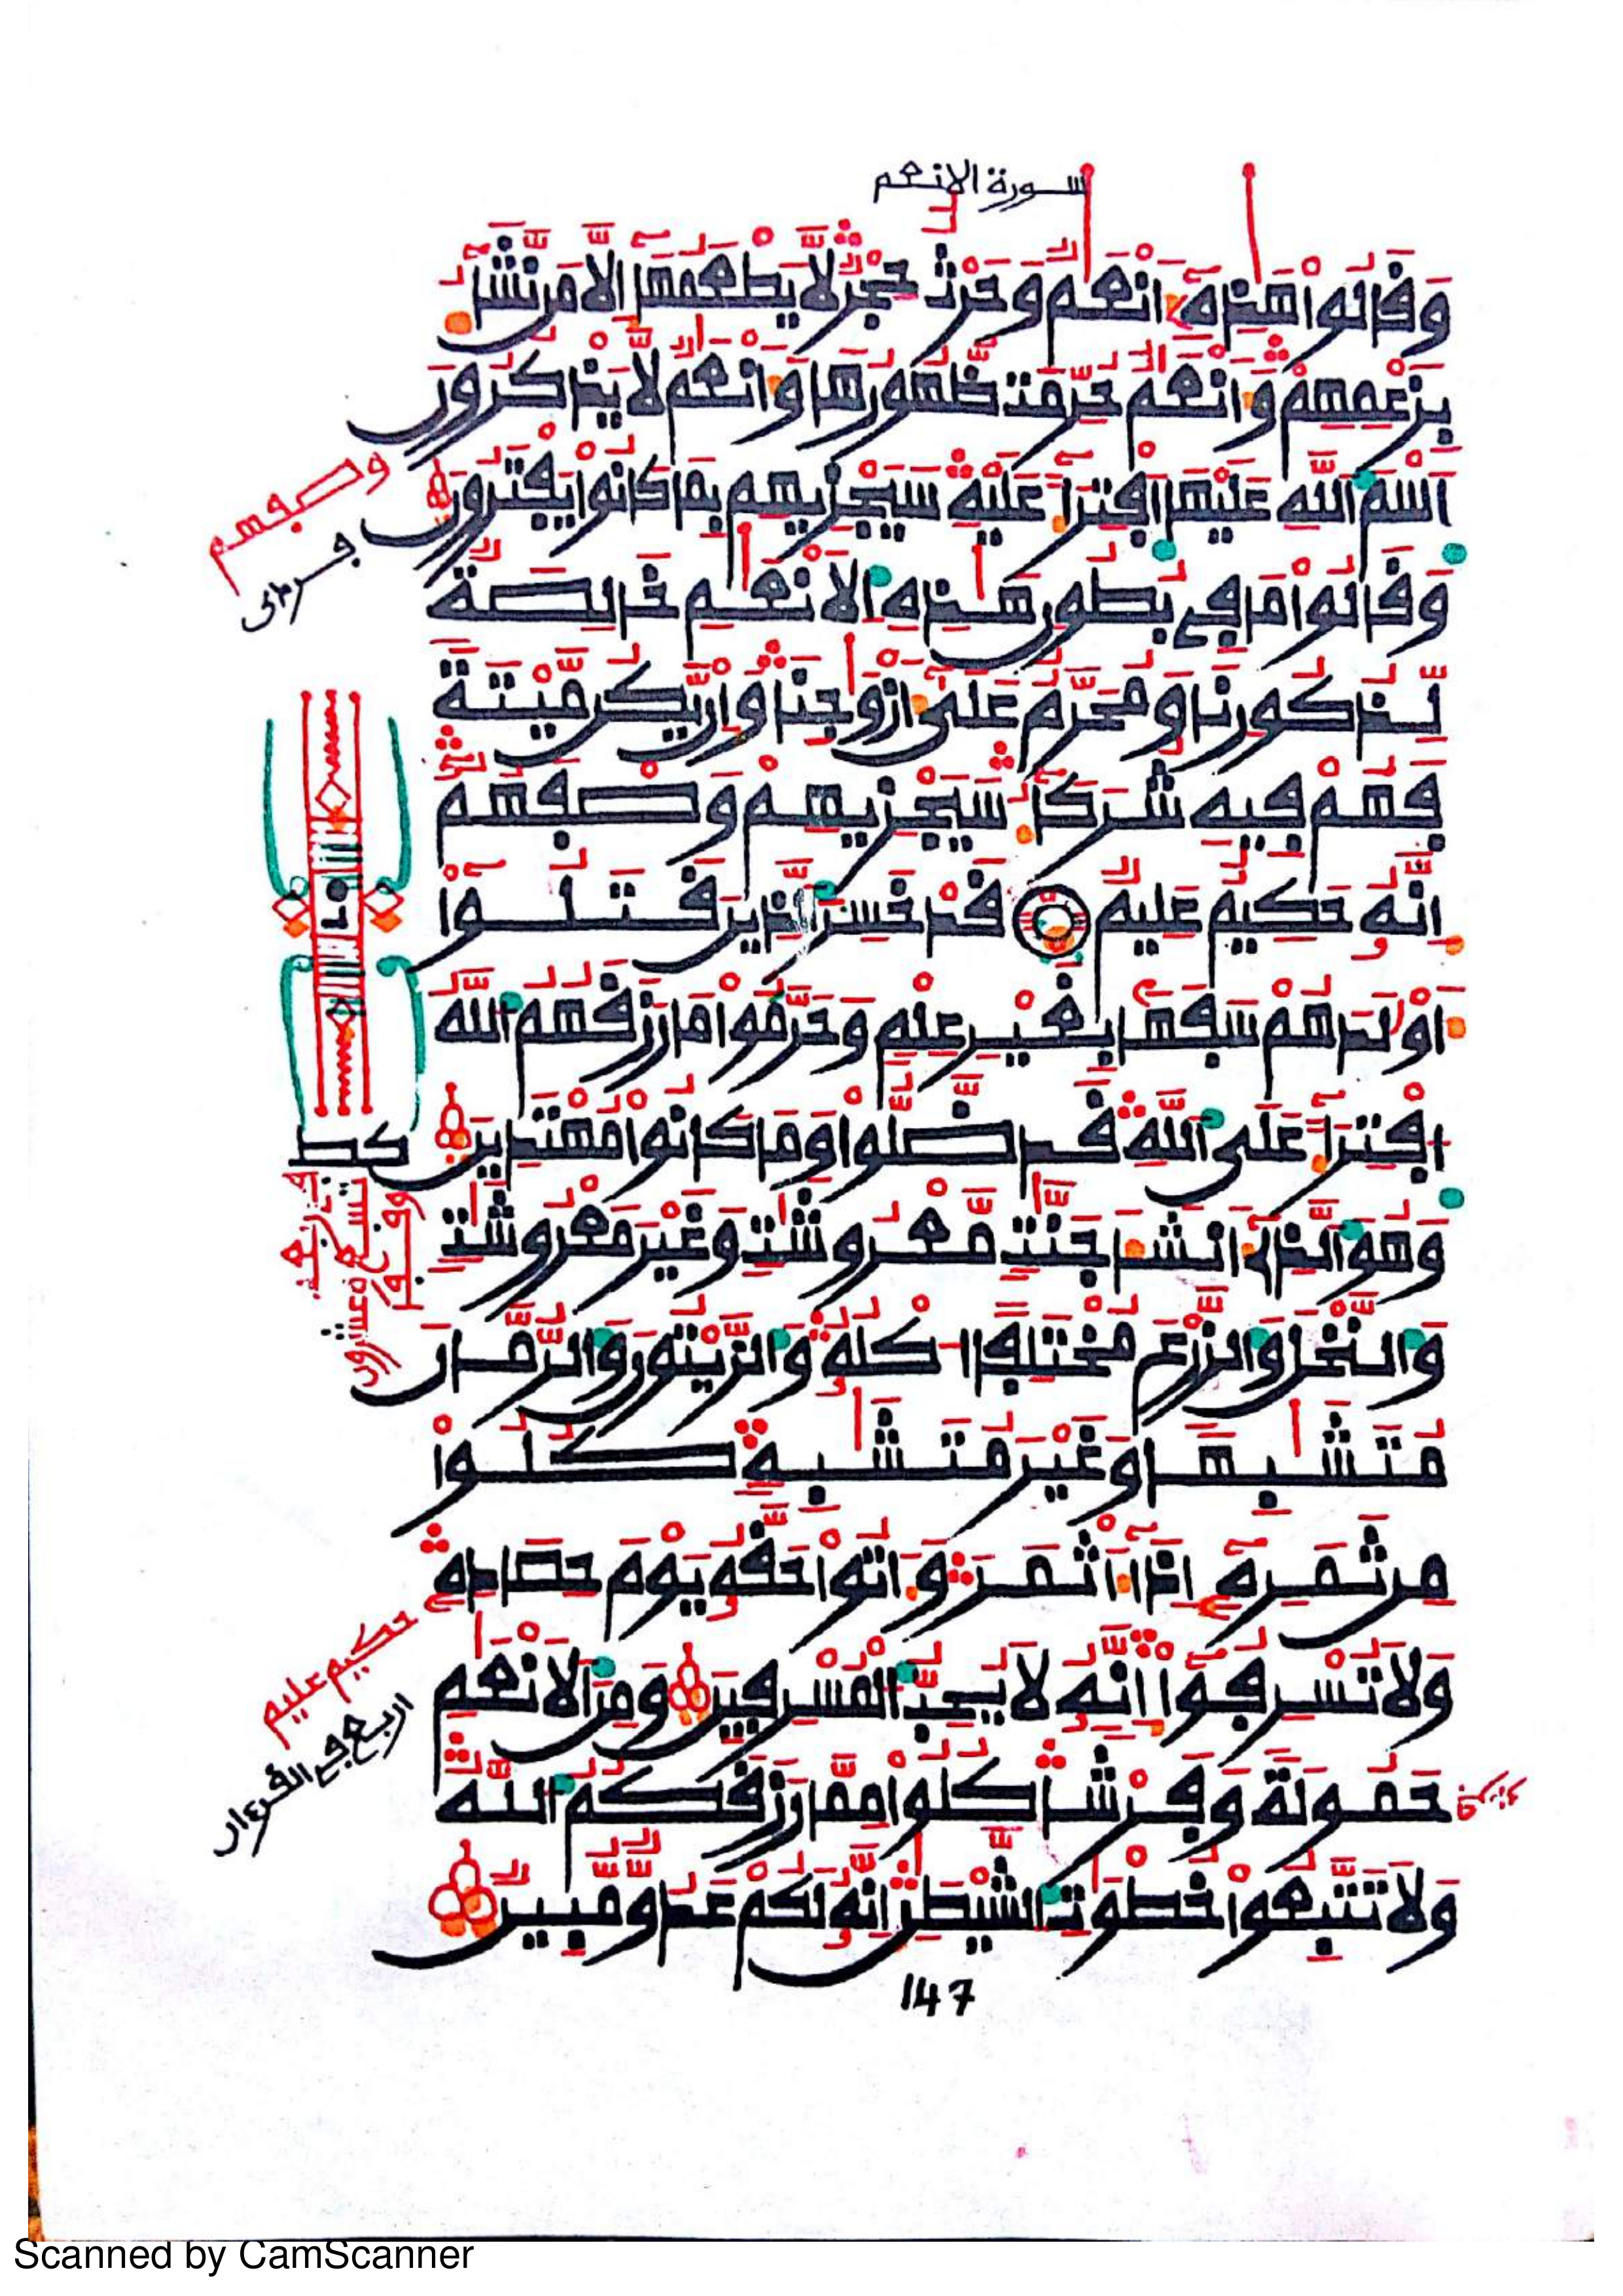 سورة الانعم
وَقَالُواْ هَٰذِهِۦٓ أَنْعَٰمٌ وَحَرْثٌ حِجْرٌ لَّا يَطْعَمُهَآ إِلَّا مَن نَّشَآءُ
بِزَعْمِهِمْ وَأَنْعَٰمٌ حُرِّمَتْ ظُهُورُهَا وَأَنْعَٰمٌ لَّا يَذْكُرُونَ
اَسْمَ اَللَّهِ عَلَيْهَا اَفْتِرَآءً عَلَيْهِ سَيَجْزِيهِم بِمَا كَانُواْ يَفْتَرُونَ
وَقَالُواْ مَا فِے بُطُونِ هَٰذِهِ اِلْأَنْعَٰمِ خَالِصَةٌ
لِّذُكُورِنَا وَمُحَرَّمٌ عَلَىٰٓ أَزْوَٰجِنَا وَإِن يَكُن مَّيْتَةً
فَهُمْ فِيهِ شُرَكَآءُ سَيَجْزِيهِمْ وَصْفَهُمْ
إِنَّهُۥ حَكِيمٌ عَلِيمٌ قَدْ خَسِرَ اَلذِينَ قَتَلُوٓاْ
أَوْلَٰدَهُمْ سَفَهًا بِغَيْرِ عِلْمٍ وَحَرَّمُواْ مَا رَزَقَهُمُ اُللَّهُ
اُفْتِرَآءً عَلَى اَللَّهِ قَد ضَّلُّواْ وَمَا كَانُواْ مُهْتَدِينَ
وَهُوَ اَلذِےٓ أَنشَأَ جَنَّٰتٍ مَّعْرُوشَٰتٍ وَغَيْرَ مَعْرُوشَٰتٍ
وَالنَّخْلَ وَالزَّرْعَ مُخْتَلِفًا اكْلُهُۥ وَالزَّيْتُونَ وَالرُّمَّانَ
مُتَشَٰبِهًا وَغَيْرَ مُتَشَٰبِهٍ كُلُواْ
مِن ثَمَرِهِۦٓ إِذَآ أَثْمَرَ وَءَاتُواْ حَقَّهُۥ يَوْمَ حِصَادِهِۦ
وَلَا تُسْرِفُوٓاْ إِنَّهُۥ لَا يُحِبُّ اُلْمُسْرِفِينَ وَمِنَ اَلْأَنْعَٰمِ
حَمُولَةً وَفَرْشًا كُلُواْ مِمَّا رَزَقَكُمُ اُللَّهُ
وَلَا تَتَّبِعُواْ خُطْوَٰتِ اِلشَّيْطَٰنِ إِنَّهُۥ لَكُمْ عَدُوٌّ مُّبِينٌ
وصفهم
حكيم عليم
اربع في القرءان
147
Scanned by CamScanner